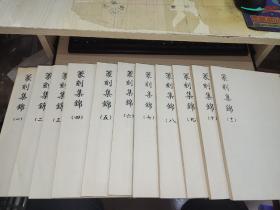 篆刻集錦
(一)
篆刻集錦
(二)
篆刻集錦
(三)
篆刻集錦
(四)
篆刻集錦
(五)
篆刻集錦
(六)
篆刻集錦
(七)
篆刻集錦
(八)
篆刻集錦
(九)
篆刻集錦
(十)
篆刻集錦
(十一)